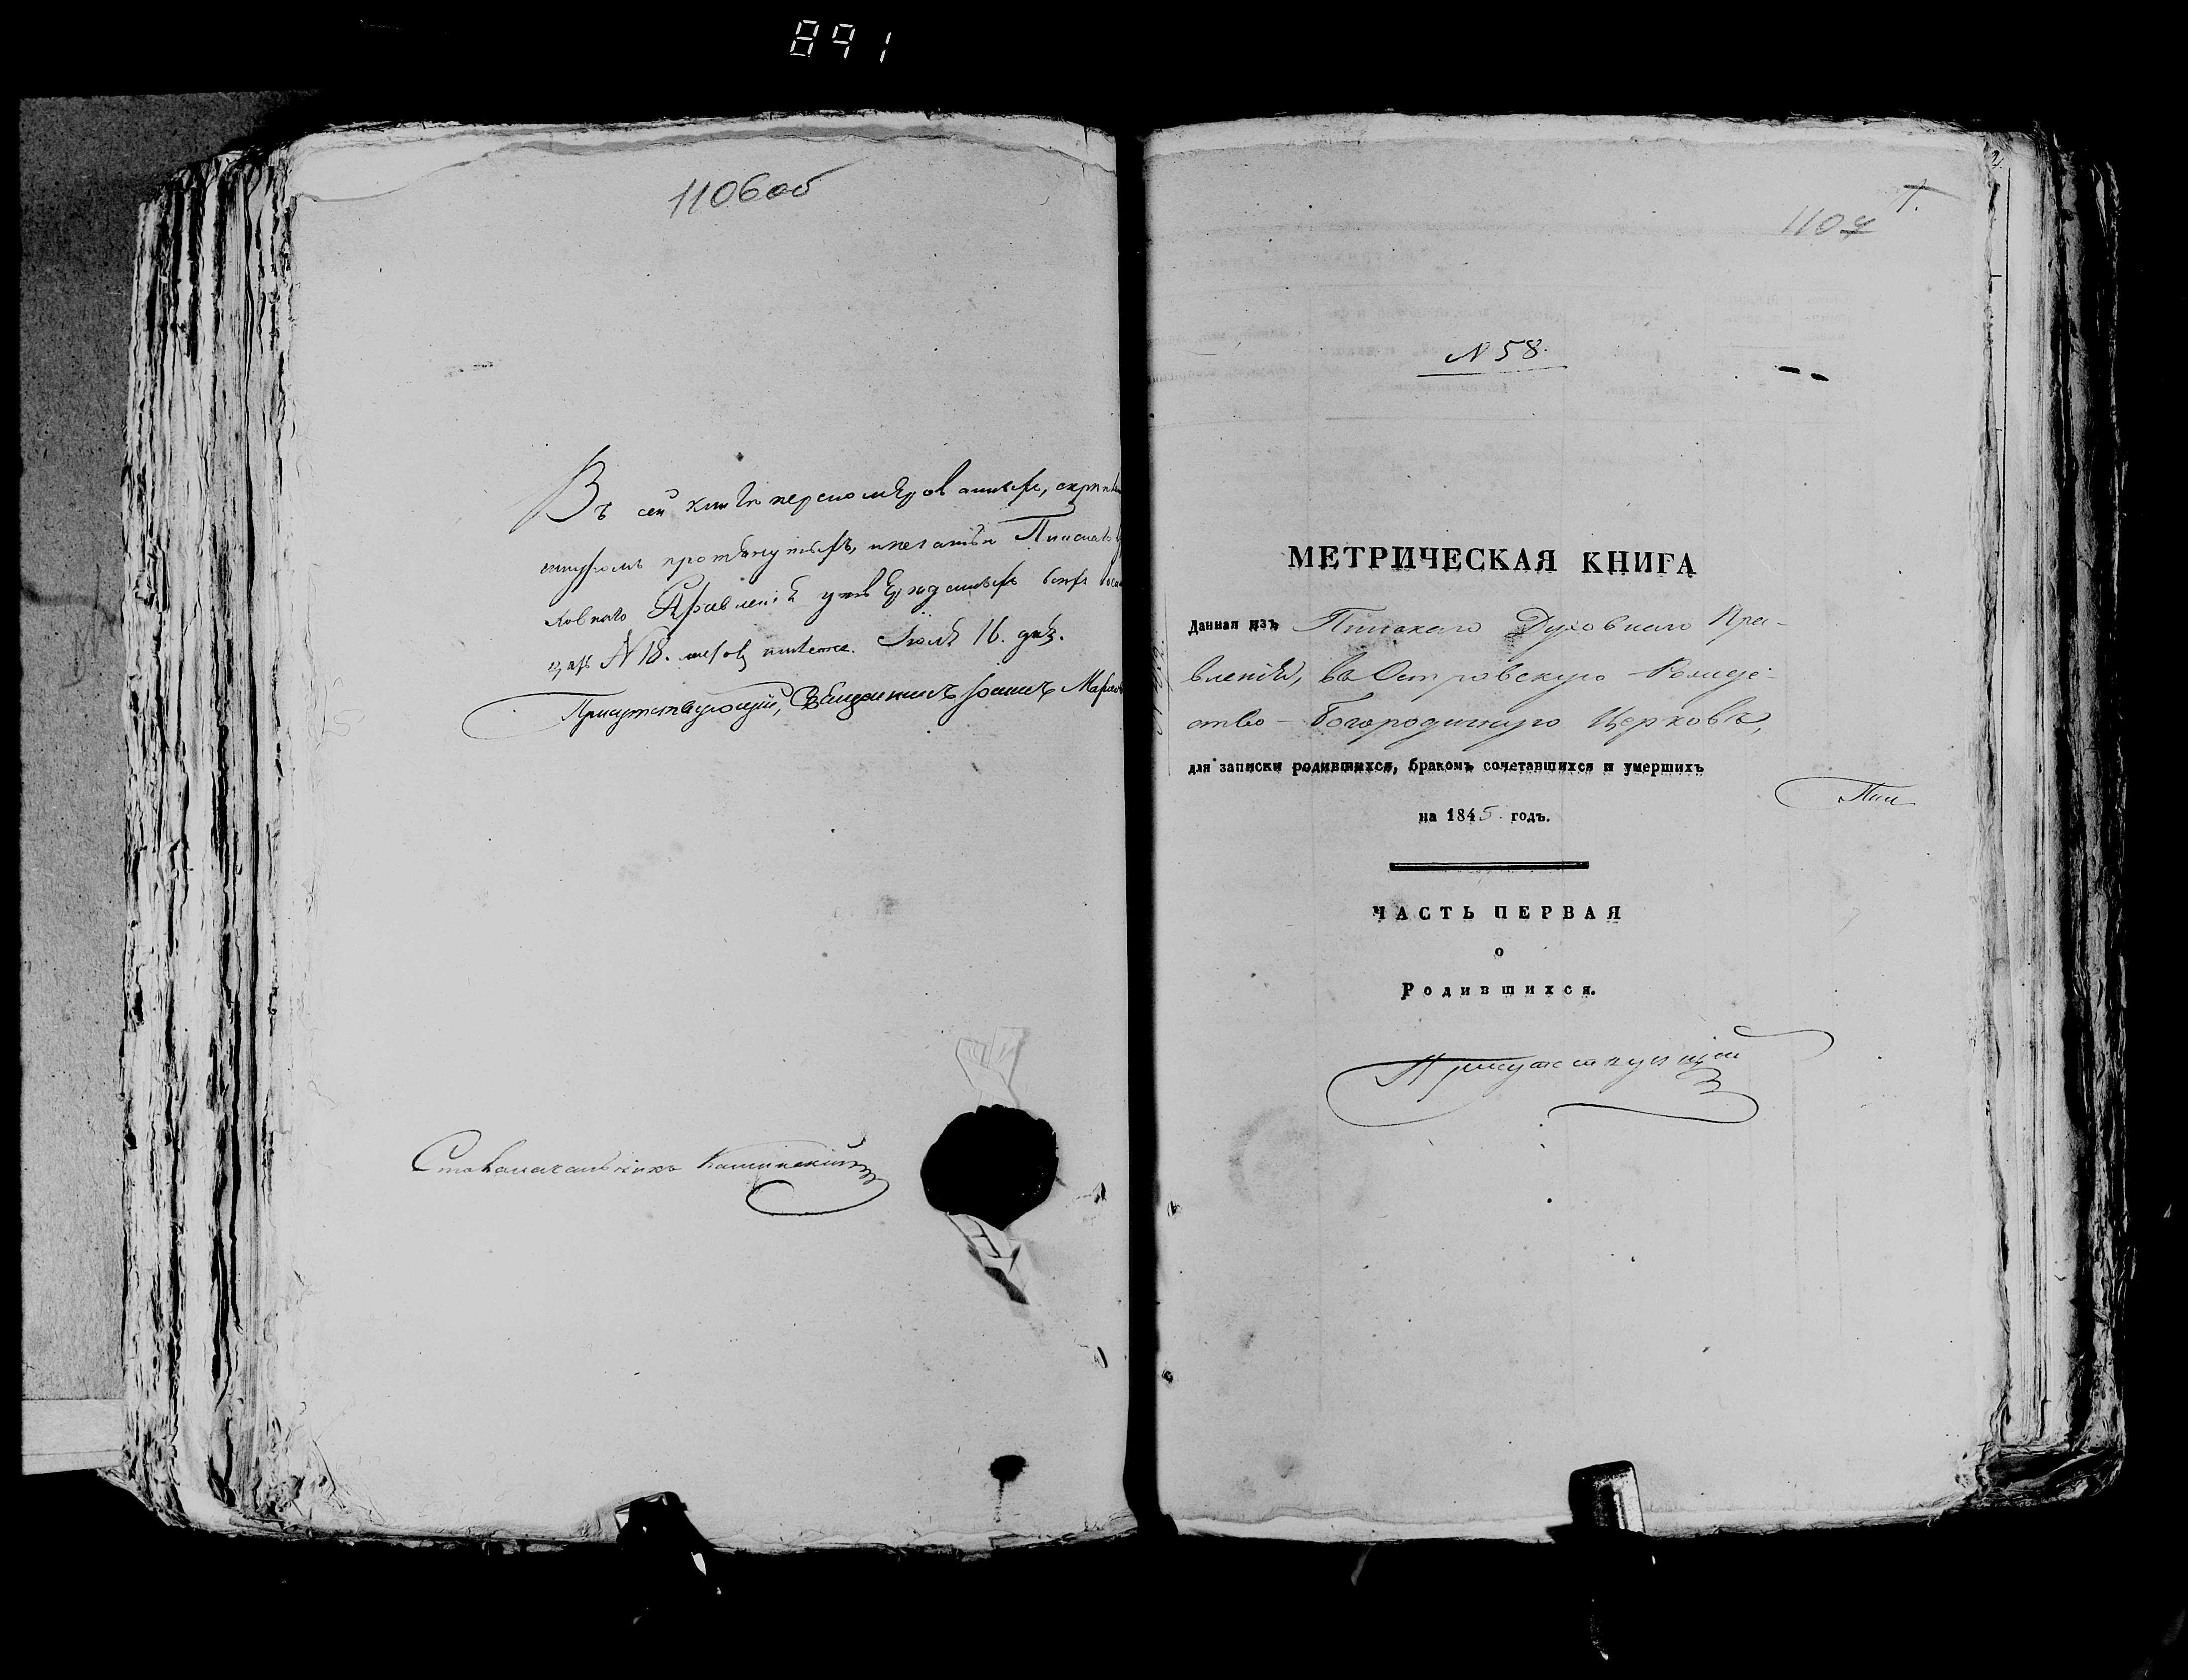 891
1106об
Въ сей книгѣ перенумерованныхъ,
шнуромъ протянутыхъ, и печатью
Правленія утвержденныхъ
№ 18. Іюля 16. дня.
Присутствующій, Священникъ Іоаннъ
Столоначальникъ
1.
1107
N 58.
МЕТРИЧЕСКАЯ КНИГА
Данная изъ Пинскаго Духовнаго Пра-
вленія, въ Островскую Рожде-
ство-Богородичную Церковь,
для записки родившихся, бракомъ сочетавшихся и умершихъ
Пин
на 1845. годъ.
ЧАСТЬ ПЕРВАЯ
о
Родившихся.
Присутствующій